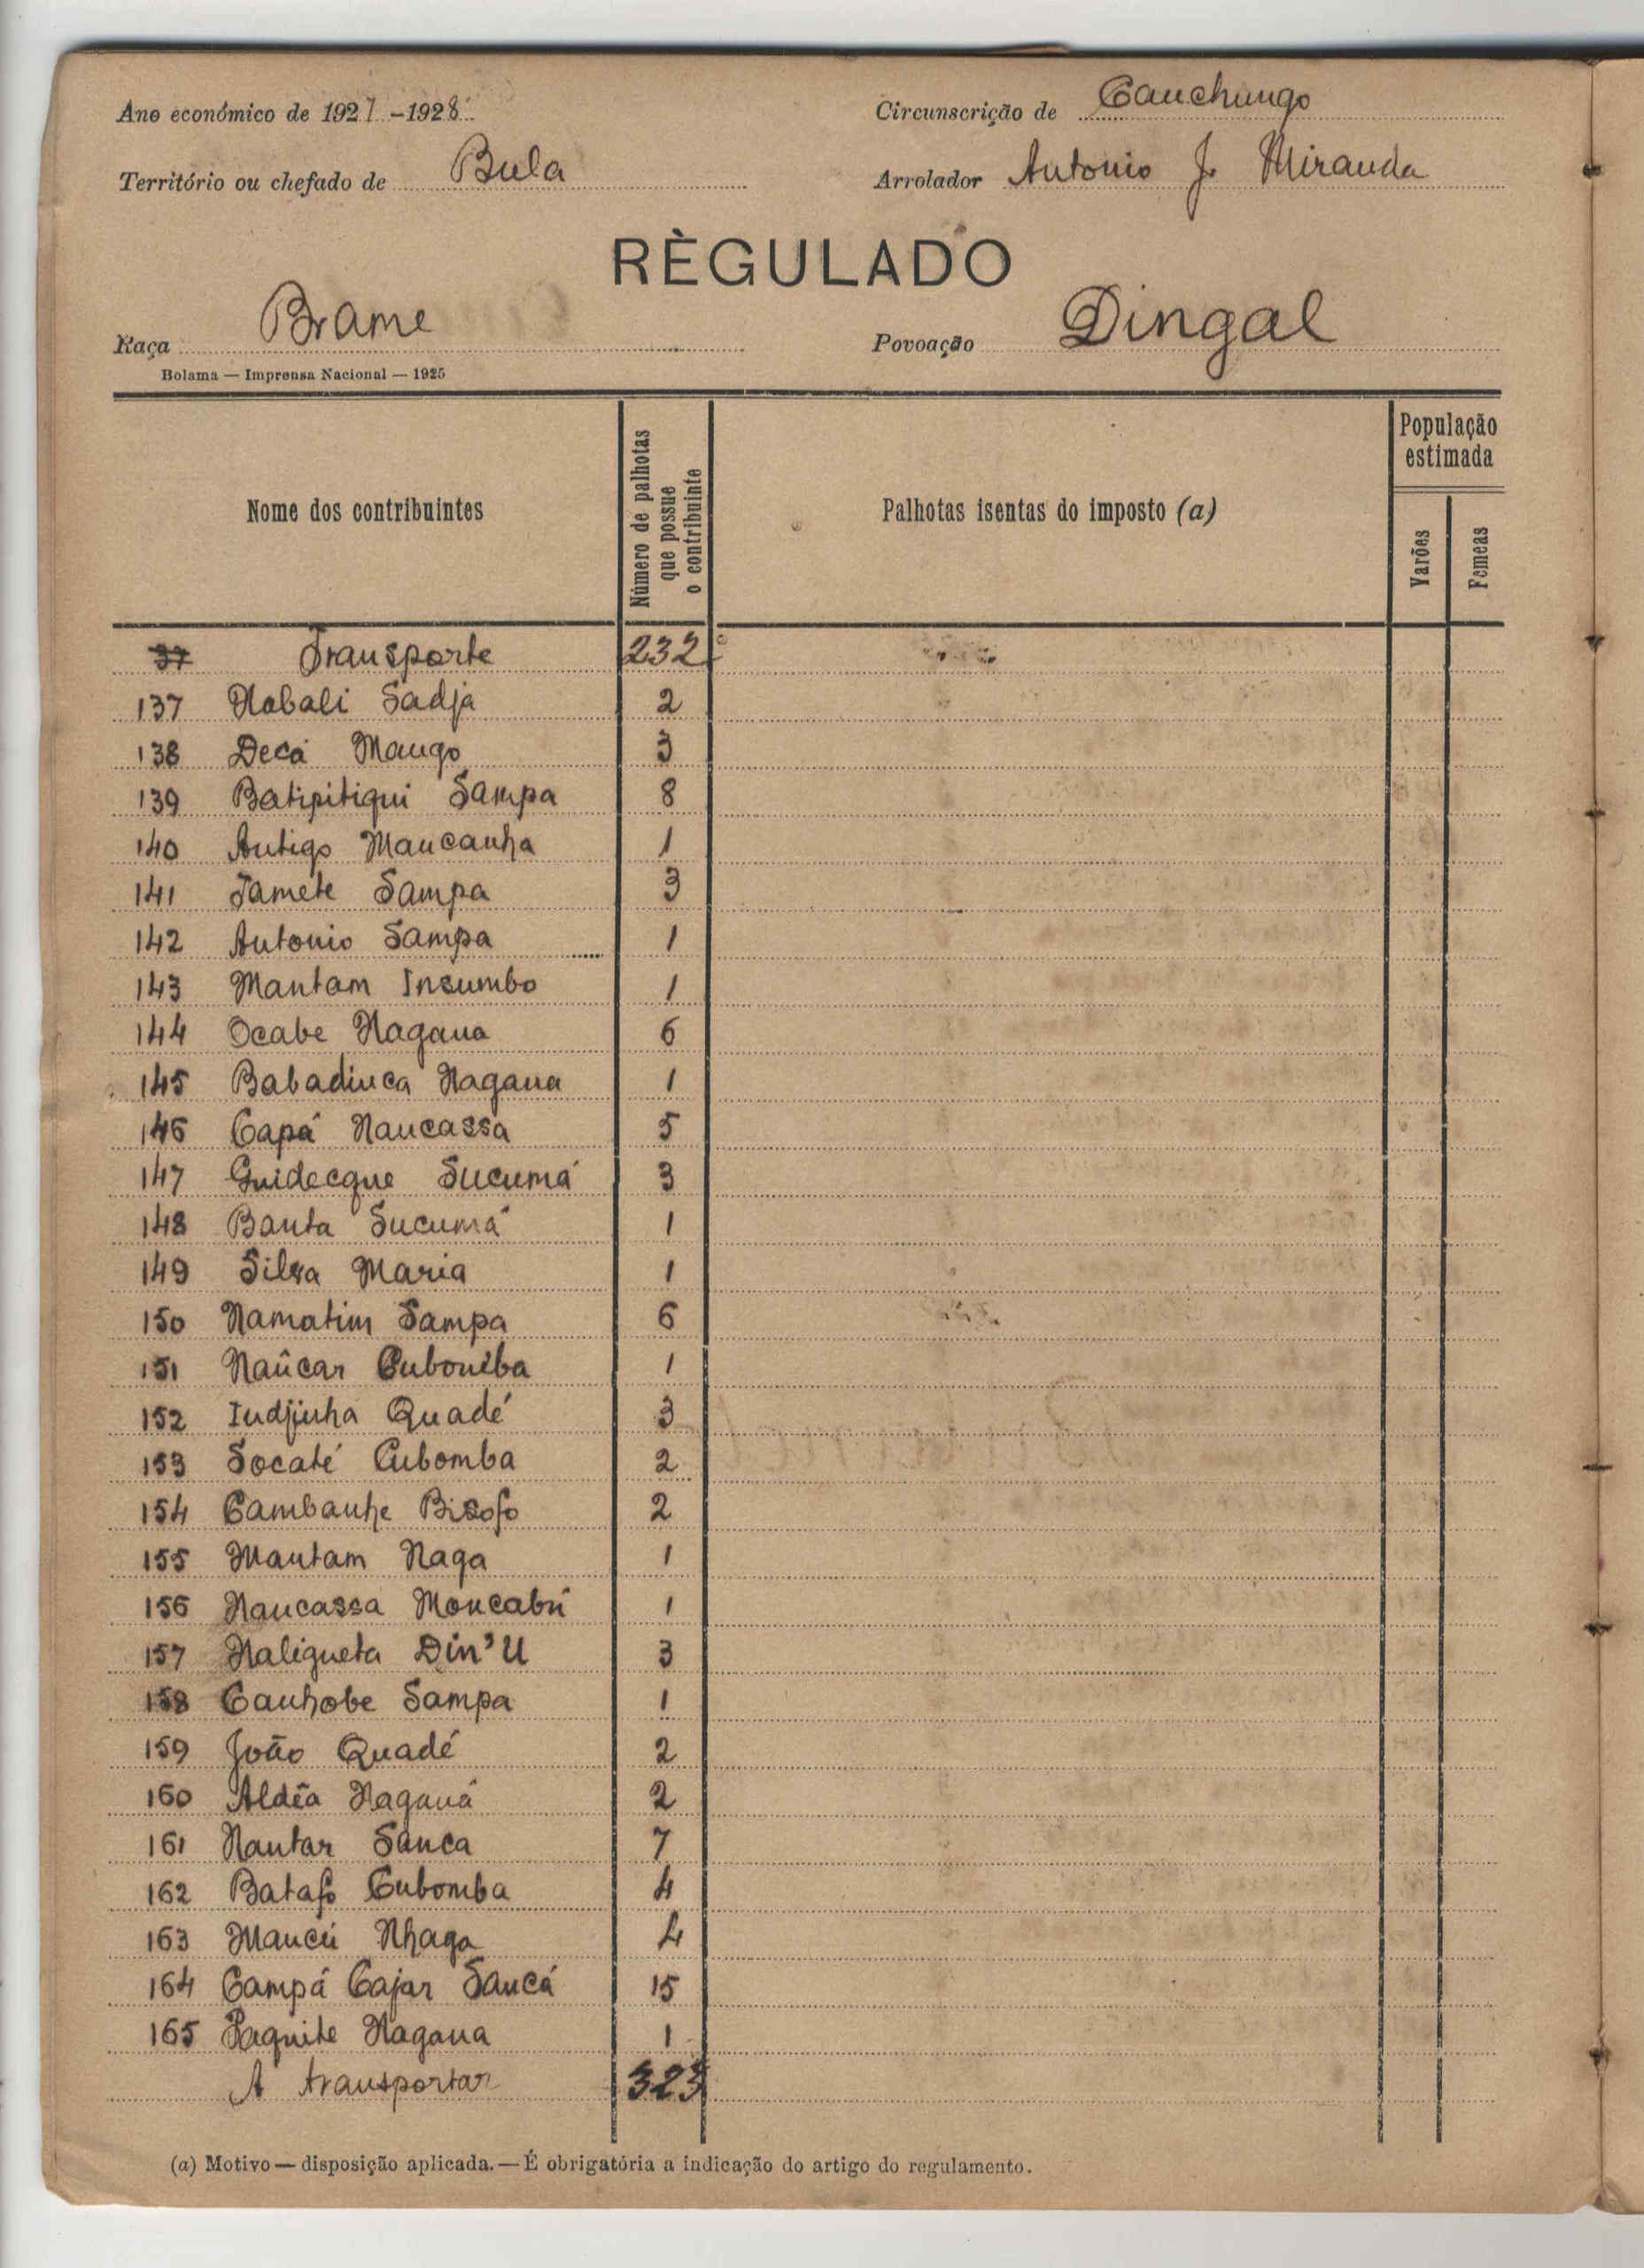 Ano económico de 1927 -1928
Circunscrição de Canchungo
Território ou chefado de Bula
Arrolador Antonio J. Miranda
RÈGULADO
Raça Brame
Povoação Dingal
Bolama — Imprensa Nacional — 1925
Nome dos contribuintes
Número de palhotas que possue o contribuinte
Palhotas isentas do imposto (a)
População estimada
Varões
Femeas
37 Transporte 232
137 Nabali Sadja 2
138 Decá Mango 3
139 Batipitiqui Sampa 8
140 Antigo Mancanha 1
141 Jamete Sampa 3
142 Antonio Sampa 1
143 Mantam Insumbo 1
144 Ocabe Nagana 6
145 Babadinca Nagana 1
146 Capá Naucassa 5
147 Guidecque Sucumá 3
148 Banta Sucumá 1
149 Silva Maria 1
150 Namatim Sampa 6
151 Naûcar Cubomba 1
152 Indjinha Quadé 3
153 Socaté Cubomba 2
154 Cambanhe Bisofo 2
155 Mantam Naga 1
156 Naucassa Moncabú 1
157 Naligueta Din'U 3
158 Canhobe Sampa 1
159 João Quadé 2
160 Aldêa Naganá 2
161 Nautar Sanca 7
162 Batafo Cubomba 4
163 Mancú Nhaga 4
164 Campá Cajar Sancá 15
165 Paquite Nagana 1
A transportar 323
(a) Motivo — disposição aplicada. — É obrigatória a indicação do artigo do regulamento.